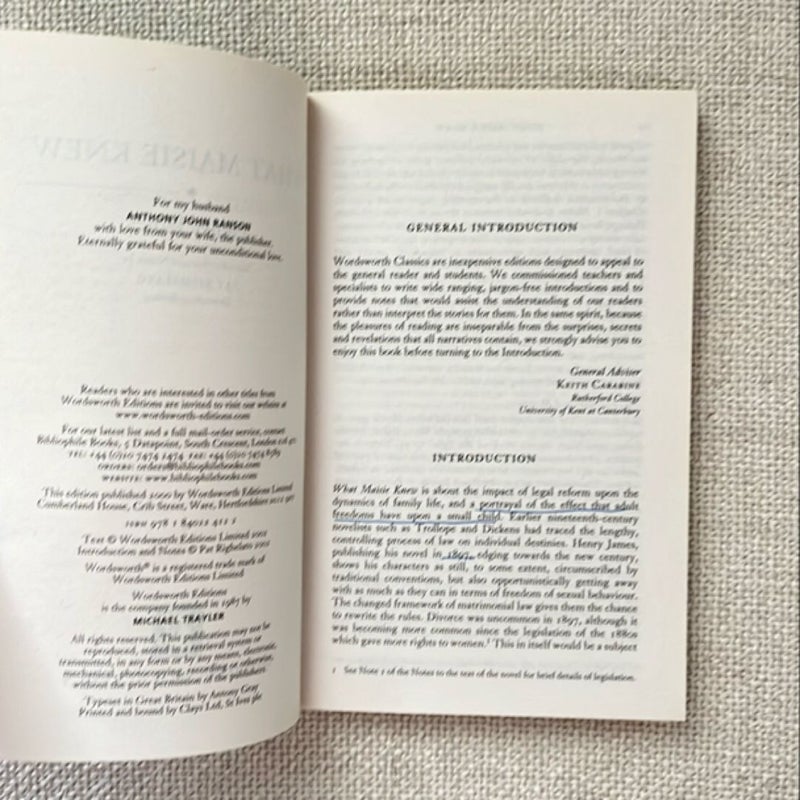 For my husband
ANTHONY JOHN RANSON
with love from your wife, the publisher.
Eternally grateful for your unconditional love.
Readers who are interested in other titles from
Wordsworth Editions are invited to visit our website at
www.wordsworth-editions.com
For our latest list and a full mail-order service, contact
Bibliophile Books, 5 Datapoint, South Crescent, London
TEL: +44 (0)20 7474 2474
ORDERS: orders@bibliophilebooks.com
WEBSITE: www.bibliophilebooks.com
This edition published 2000 by Wordsworth Editions Limited
Cumberland House, Crib Street, Ware, Hertfordshire
ISBN 978 1 84022 412 2
Text © Wordsworth Editions Limited
Introduction and Notes © Pat Righelato
Wordsworth® is a registered trade mark of
Wordsworth Editions Limited
Wordsworth Editions
is the company founded in 1987 by
MICHAEL TRAYLER
All rights reserved. This publication may not be
reproduced, stored in a retrieval system or
transmitted, in any form or by any means, electronic,
mechanical, photocopying, recording or otherwise,
without the prior permission of the publishers.
Typeset in Great Britain by Antony Gray
Printed and bound by Clays Ltd, St Ives plc
GENERAL INTRODUCTION
Wordsworth Classics are inexpensive editions designed to appeal to
the general reader and students. We commissioned teachers and
specialists to write wide ranging, jargon-free introductions and to
provide notes that would assist the understanding of our readers
rather than interpret the stories for them. In the same spirit, because
the pleasures of reading are inseparable from the surprises, secrets
and revelations that all narratives contain, we strongly advise you to
enjoy this book before turning to the Introduction.
General Adviser
KEITH CARABINE
Rutherford College
University of Kent at Canterbury
INTRODUCTION
What Maisie Knew is about the impact of legal reform upon the
dynamics of family life, and a portrayal of the effect that adult
freedoms have upon a small child. Earlier nineteenth-century
novelists such as Trollope and Dickens had traced the lengthy,
controlling process of law on individual destinies. Henry James,
publishing his novel in 1897, edging towards the new century,
shows his characters as still, to some extent, circumscribed by
traditional conventions, but also opportunistically getting away
with as much as they can in terms of freedom of sexual behaviour.
The changed framework of matrimonial law gives them the chance
to rewrite the rules. Divorce was uncommon in 1897, although it
was becoming more common since the legislation of the 1880s
which gave more rights to women.¹ This in itself would be a subject
1 See Note 1 of the Notes to the text of the novel for brief details of legislation.